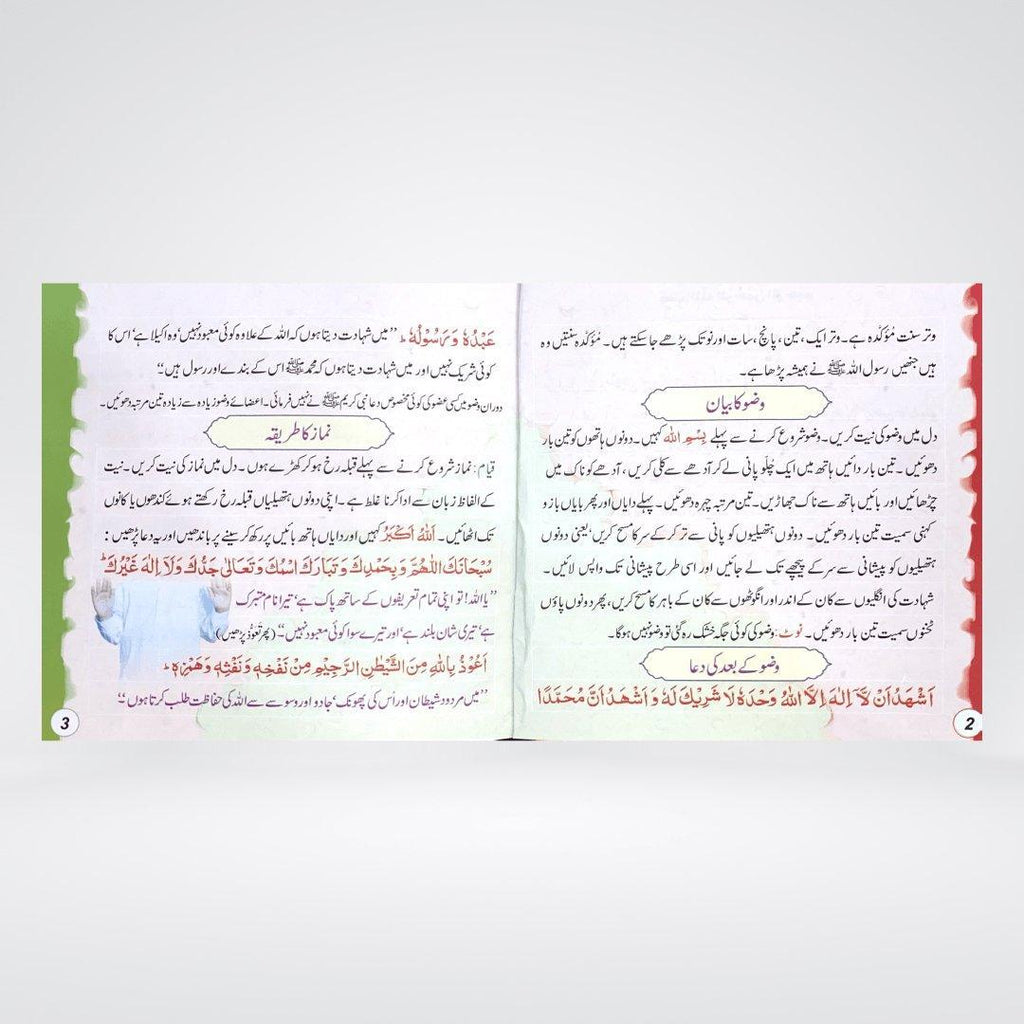 وتر سنت مؤکّدہ ہے۔ وتر ایک، تین، پانچ، سات اور نو تک پڑھے جا سکتے ہیں۔ مُؤکّدہ سنتیں وہ
ہیں جنھیں رسول اللہ ﷺ نے ہمیشہ پڑھا ہے۔
وضو کا بیان
دل میں وضو کی نیت کریں۔ وضو شروع کرنے سے پہلے بِسْمِ اللّٰہ کہیں۔ دونوں ہاتھوں کو تین بار
دھوئیں۔ تین بار دائیں ہاتھ میں ایک چُلّو پانی لے کر آدھے سے کلی کریں، آدھے کو ناک میں
چڑھائیں اور بائیں ہاتھ سے ناک جھاڑیں۔ تین مرتبہ چہرہ دھوئیں۔ پہلے دایاں اور پھر بایاں بازو
کہنی سمیت تین بار دھوئیں۔ دونوں ہتھیلیوں کو پانی سے تر کر کے سر کا مسح کریں‘ یعنی دونوں
ہتھیلیوں کو پیشانی سے سر کے پیچھے تک لے جائیں اور اسی طرح پیشانی تک واپس لائیں۔
شہادت کی انگلیوں سے کان کے اندر اور انگوٹھوں سے کان کے باہر کا مسح کریں، پھر دونوں پاؤں
ٹخنوں سمیت تین بار دھوئیں۔ نوٹ: وضو کی کوئی جگہ خشک رہ گئی تو وضو نہیں ہوگا۔
وضو کے بعد کی دعا
اَشْهَدُ اَنْ لَّآ اِلٰهَ اِلَّا اللّٰهُ وَحْدَهٗ لَا شَرِيْكَ لَهٗ وَ اَشْهَدُ اَنَّ مُحَمَّدًا
2
عَبْدُهٗ وَ رَسُوْلُهٗ ۔ ”میں شہادت دیتا ہوں کہ اللہ کے علاوہ کوئی معبود نہیں‘ وہ اکیلا ہے‘ اس کا
کوئی شریک نہیں اور میں شہادت دیتا ہوں کہ محمد ﷺ اس کے بندے اور رسول ہیں“
دوران وضو میں کسی عضو کی کوئی مخصوص دعا نبی کریم ﷺ نے نہیں فرمائی۔ اعضائے وضو زیادہ سے زیادہ تین مرتبہ دھوئیں۔
نماز کا طریقہ
قیام: نماز شروع کرنے سے پہلے قبلہ رخ ہو کر کھڑے ہوں۔ دل میں نماز کی نیت کریں۔ نیت
کے الفاظ زبان سے ادا کرنا غلط ہے۔ اپنی دونوں ہتھیلیاں قبلہ رخ رکھتے ہوئے کندھوں یا کانوں
تک اٹھائیں۔ اَللّٰهُ اَكْبَرُ کہیں اور دایاں ہاتھ بائیں پر رکھ کر سینے پر باندھیں اور یہ دعا پڑھیں:
سُبْحَانَكَ اللّٰهُمَّ وَ بِحَمْدِكَ وَ تَبَارَكَ اسْمُكَ وَ تَعَالٰى جَدُّكَ وَ لَآ اِلٰهَ غَيْرُكَ ۔
”یا اللہ! تو اپنی تمام تعریفوں کے ساتھ پاک ہے‘ تیرا نام متبرک
ہے‘ تیری شان بلند ہے‘ اور تیرے سوا کوئی معبود نہیں۔“ (پھر تعوّذ پڑھیں)
اَعُوْذُ بِاللّٰهِ مِنَ الشَّيْطٰنِ الرَّجِيْمِ مِنْ نَفْخِهٖ وَ نَفْثِهٖ وَ هَمْزِهٖ ۔
”میں مردود شیطان اور اُس کی پھونک‘ جادو اور وسوسے سے اللہ کی حفاظت طلب کرتا ہوں“
3